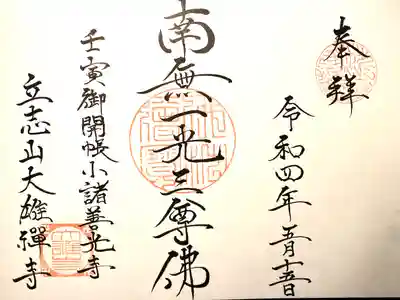 奉拝
令和四年五月十五日
南無一光三尊佛
壬寅御開帳小諸善光寺
立志山大雄禅寺